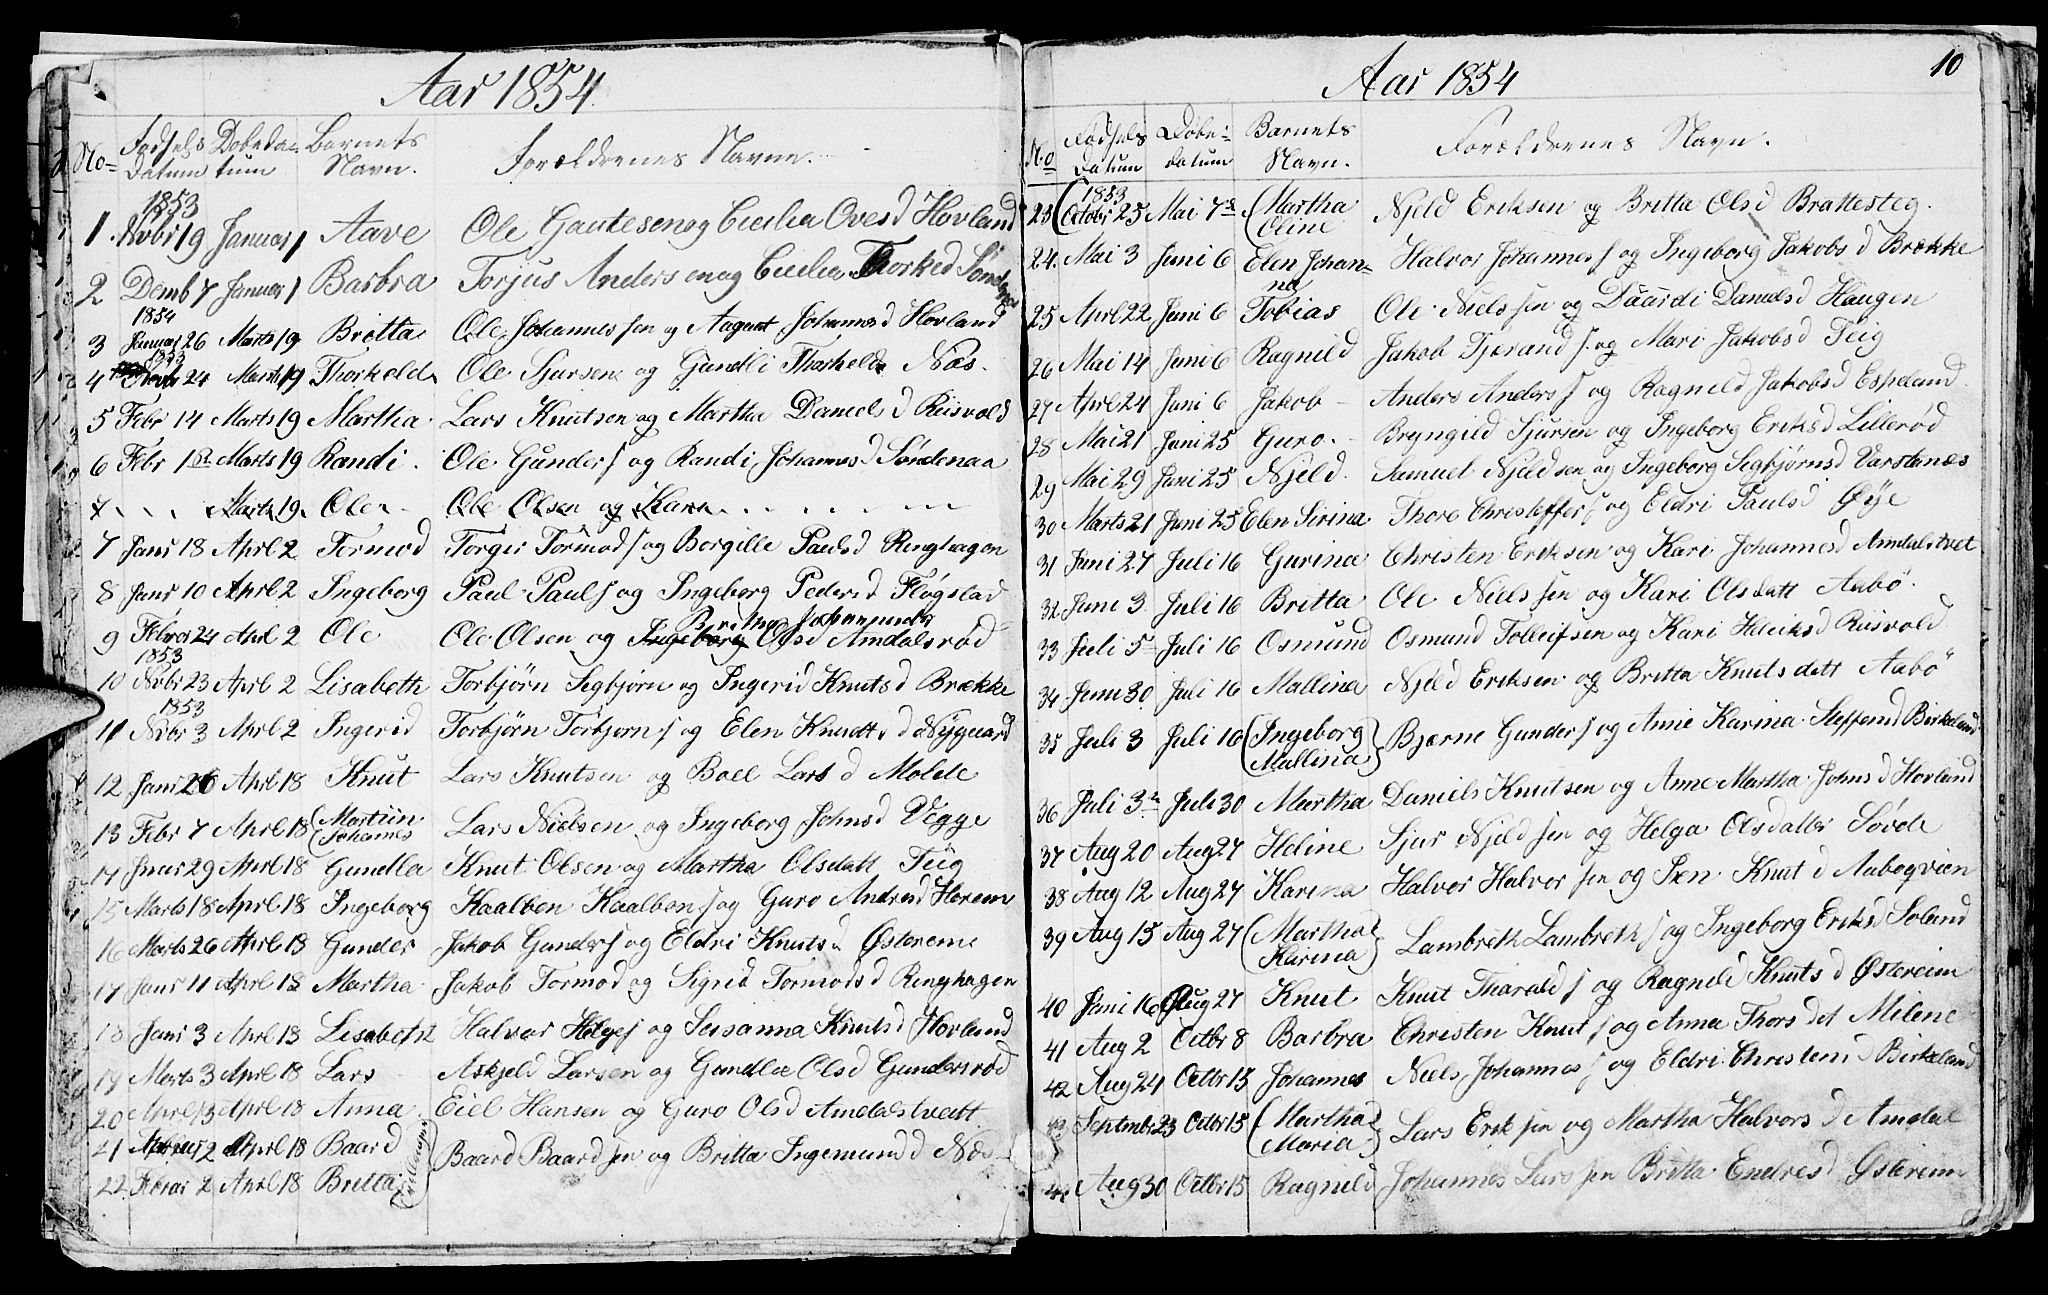 Aar 1854.
No Fødsels Datum Dobeda= tum Barnets Navn. Forældrenes Navne.
1853
1 Nvbr 19 Januar 1 Aave Ole Gautesen og Cecilia Ovesd Hovland
2 Demb 7 Januar 1 Barbra Torjus Andersen og Cecilia Thorked
1854
3 Januar 26 Marts 19 Britta Ole Johannessen og Aagaat Johannesd Hovland
1853
4 24 Marts 19 Thorkeld Ole Sjursen og Gundli Thorkeld Næs.
5 Febr 14 Marts 19 Martha Lars Knutsen og Martha Daniels d Riisvold
6 Febr 1 Marts 19 Randi. Ole Gunders og Randi Johannesd Søndenaa
Marts 19. Ole Ole Olsen og Kari
7 Janr 18 Aprl 2 Tormod Torger Tormods og Borgille Paulsd Ringhagen
8 Janr 10 Aprl 2 Ingeborg Paul Pauls og Ingeborg Pedersd Fløgstad
9 Febrar 24 Aprl 2 Ole Ole Olsen og Ingeborg Olsd Amdalsrød
1853
10 Nvbr 23 Aprl 2 Lisabeth Torbjørn Segbjørn og Ingerid Knutsd Brække
1853
11 Nvbr 3 Aprl 2 Ingerid Torbjørn Torbjorns og Elen Knudts d Nygaard
12 Janr 26 Aprl 18 Knut Lars Knutsen og Boel Lars d Molde
13 Febr 7 Aprl 18 (Martiin Johanes Lars Nielsen og Ingeborg Johnsd Vegge
14 Janar 29 Aprl 18 Gundla Knut Olsen og Martha Olsdatt Tiig
15 Marts 18 Aprl 18 Ingeborg Kaalben Kaalbens og Guro Andresd Horeim
16 Marts 26 Aprl 18 Gunder Jakob Gunders og Eldri Knutsd Østereme
17 Janr 11 Aprl 18 Martha Jakob Tormod og Sigrid Tormodsd Ringhagen
18 Janr 3 Aprl 18 Lisabeth Halvor Helges og Susanna Knutsd Hovland
19 Marts 3 Aprl 18 Lars Askjeld Larsen og Gundla Olsd Gundersrød
20 Aprl 13 Aprl 18 Anna. Eiel Hansen og Guro Olsd Amdalstvedt
21 2 Aprl 18 Baard Baard Baardsen og Britta Ingemund d Næs
22 Febrar 2 Aprl 18 Britta
10
Aar 1854
No Fødsels Datum Døbe= datum Barnets Navn. Forældrenes Navn.
1853
23 Octobr 25 Mai 7 (Martha Oline Njeld Eriksen og Britta Olsd Brattesteg.
24. Mai 3 Juni 6 Elen Johan= na Halvor Johannes s og Ingeborg Jakobs d Brekke
25 Aprl 22 Juni 6 Tobias Ole Nielssen og Daardi Danielsd Haugen
26 Mai 14 Juni 6 Ragnild Jakob Tjerand s. og Mari Jakobsd Tiig
27 Aprl 24 Juni 6 Jakob Anders Anders s og Ragnild Jakobsd Espeland
28 Mai 21 Juni 25 Guro. Bryngild Sjursen og Ingeborg Eriksd Lillerød
29 Mai 29 Juni 25 Njeld. Samuel Njeldsen og Ingeborg Segbjørnsd Varstanæs
30 Marts 21 Juni 25 Elen Sirina Thore Christoffer s og Eldri Paulsd Øye
31 Juni 27 Juli 16 Gurina Christen Eriksen og Kari Johannesd Amdalstvet
32 Juni 3 Juli 16 Britta Ole Nielssen og Kari Olsdatt Aabø.
33 Juli 5 Juli 16 Osmund Osmund Tolleifsen og Kari Riisvold
34 Juni 30 Juli 16 Mallina Njeld Eriksen og Britta Knutsdatt Aabø
35 Juli 3 Juli 16 (Ingeborg Mallina) Bjærne Gunders og Anne Karina Steffensd Birkeland
36 Juli 3 Juli 30 Martha Daniels Knutsen og Anne Martha Johns d Hovland
37 Aug 20 Aug 27 Heline Sjur Njeldsen og Helga Olsdatter Søvde
38 Aug 12 Aug 27 Karina Halvor Halvorsen og Knut d Aabøqvien
39 Aug 15 Aug 27 (Martha Karina) Lambreth Lambreths og Ingeborg Eriksd Soland
40 Juni 16 Aug 27 Knut Knut Tharald s og Ragnild Knuts d Østereim
41 Aug 2 Octbr 8 Barbra Christen Knut s og Anna Thorsdet Milene
42 Aug 24 Octbr 15 Johannes Niels Johannes s og Eldri Christend Birkeland
43 Septmbr 23 Octbr 15 (Martha Maria) Lars Eriksen og Martha Halvors d Amdal
44 Aug 30 Octbr 15 Ragnild Johannes Larssen Britta Endresd Østereim